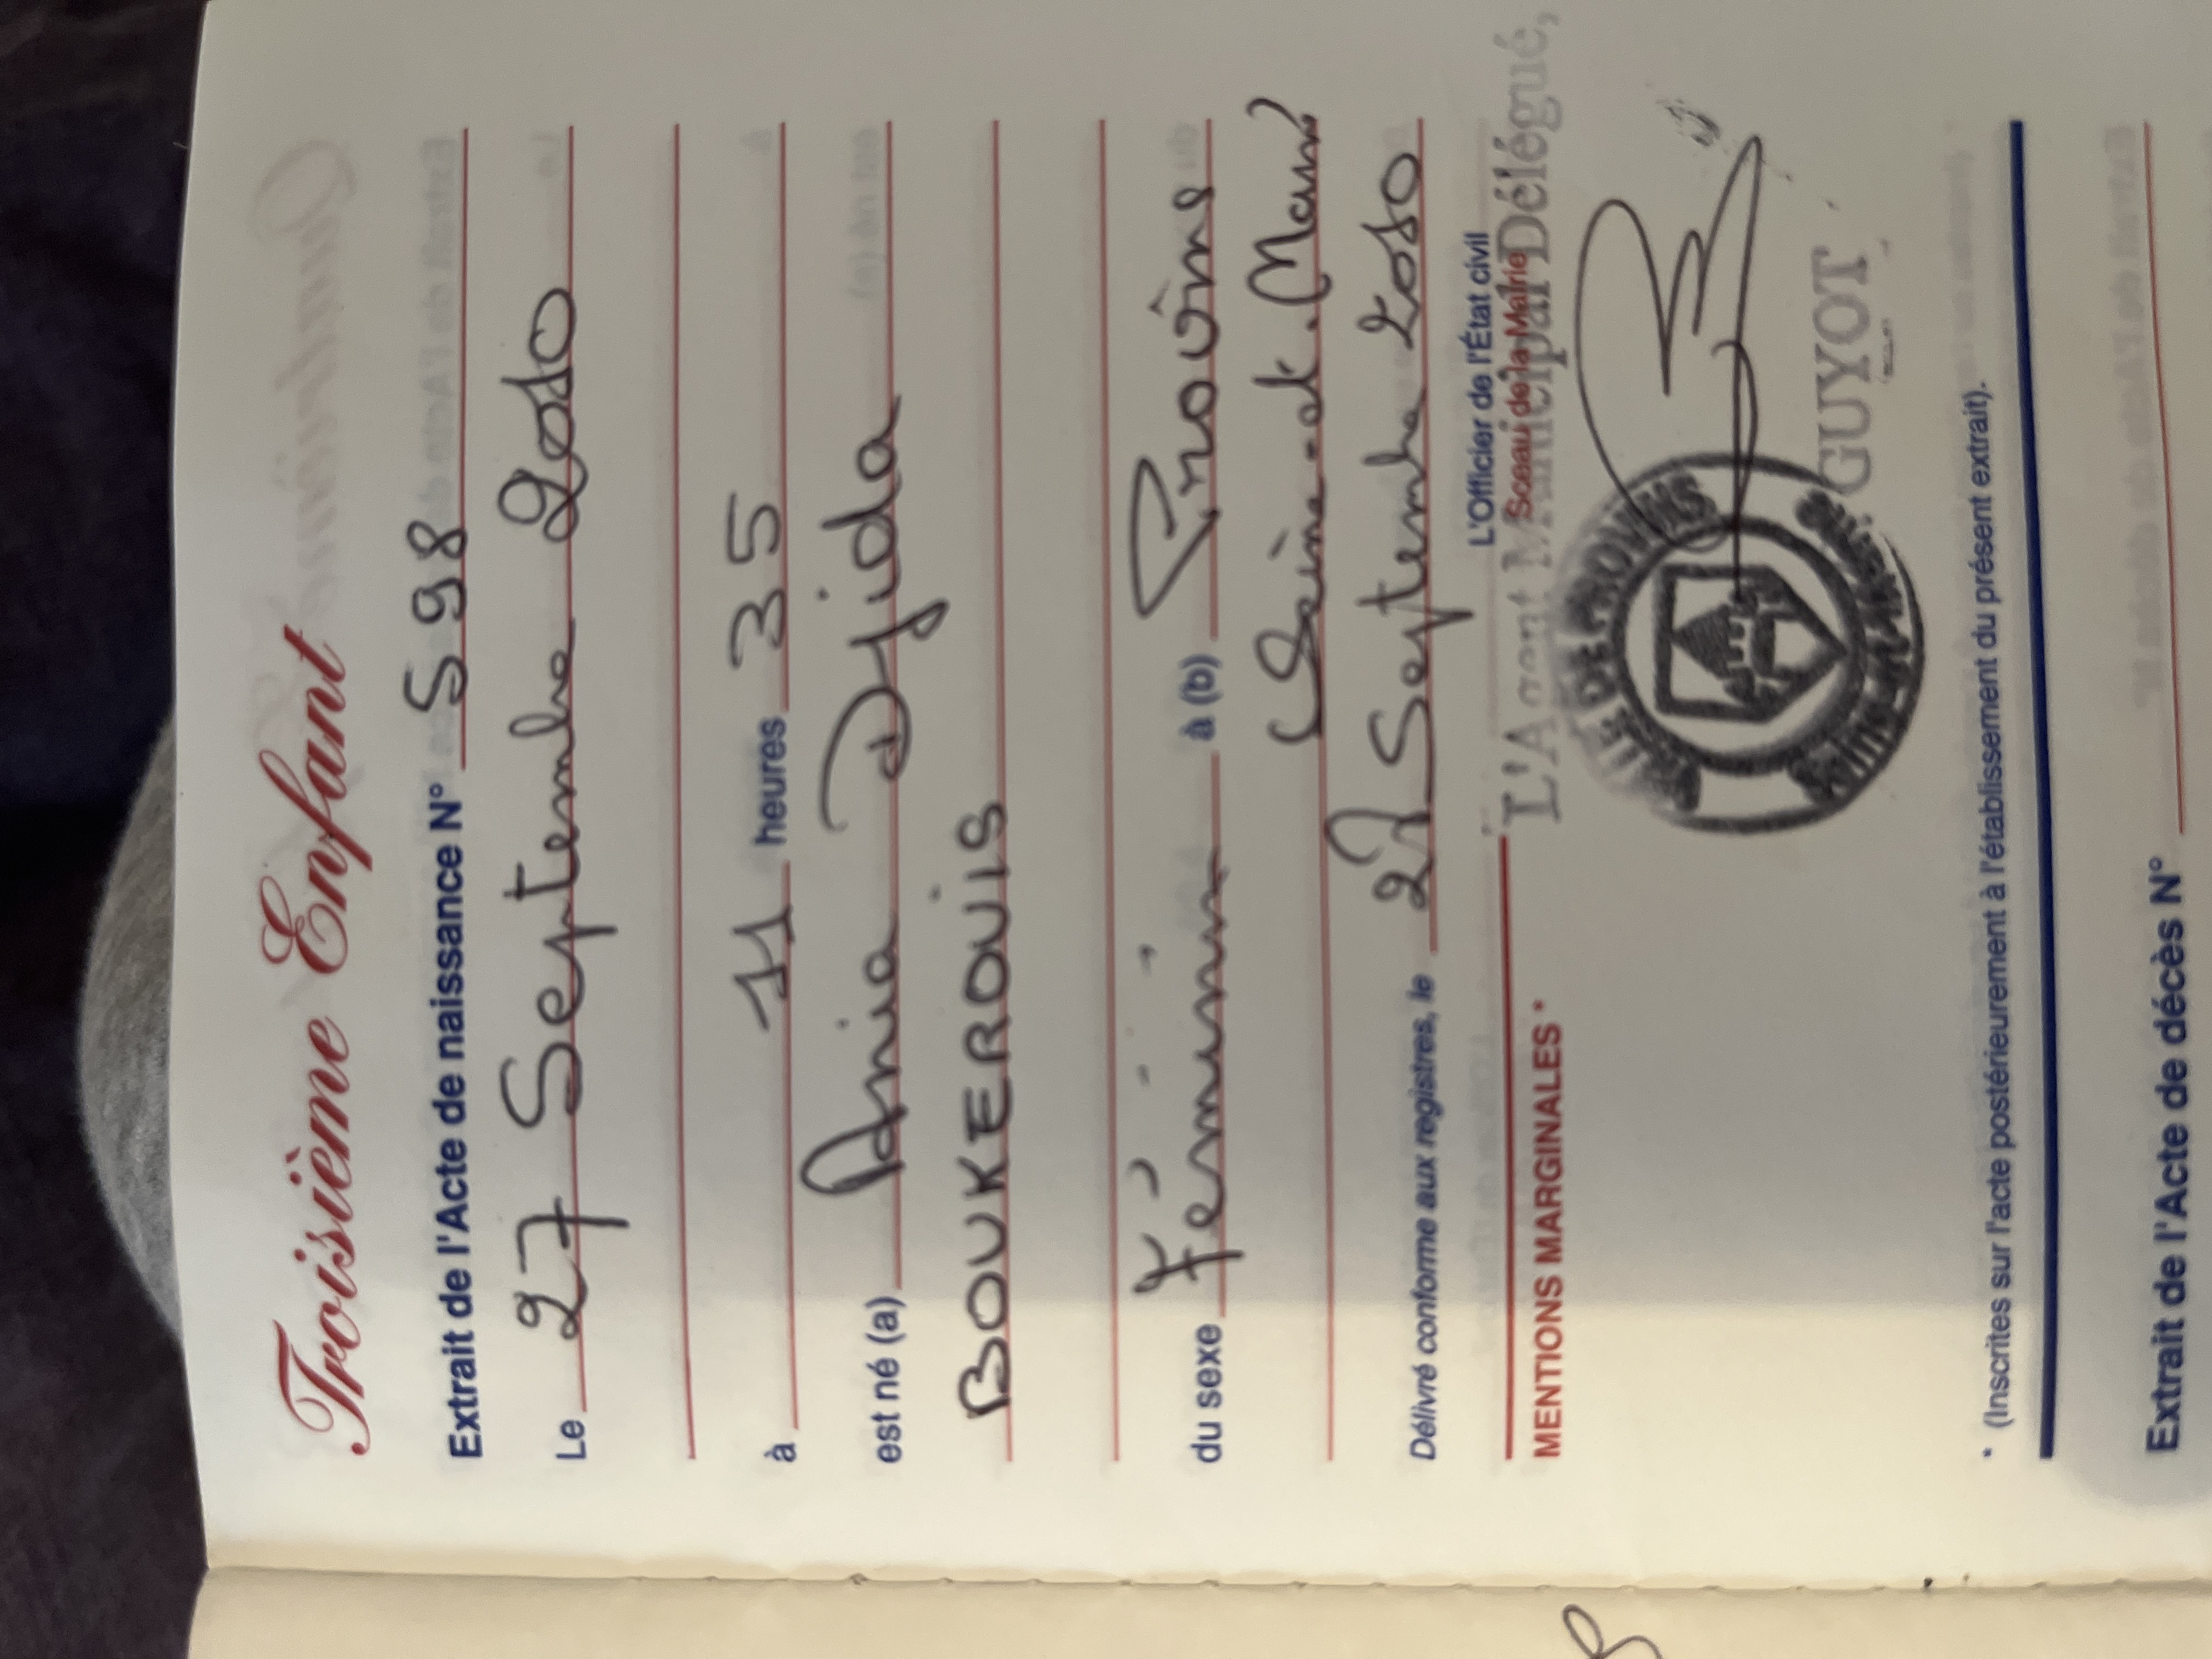 Troisième Enfant
Extrait de l'Acte de naissance N° 598
Le 27 Septembre 2010
à 11 heures 35
est né (a) Ania Djida
BOUKEROUIS
du sexe Féminin à (b) Provins
Seine-et-Marne
Délivré conforme aux registres, le 27 Septembre 2010
L'Officier de l'État civil
Sceau de la Mairie
L'Agent Municipal Délégué,
MENTIONS MARGINALES *
VILLE DE PROVINS
GUYOT
* (Inscrites sur l'acte postérieurement à l'établissement du présent extrait).
Extrait de l'Acte de décès N°